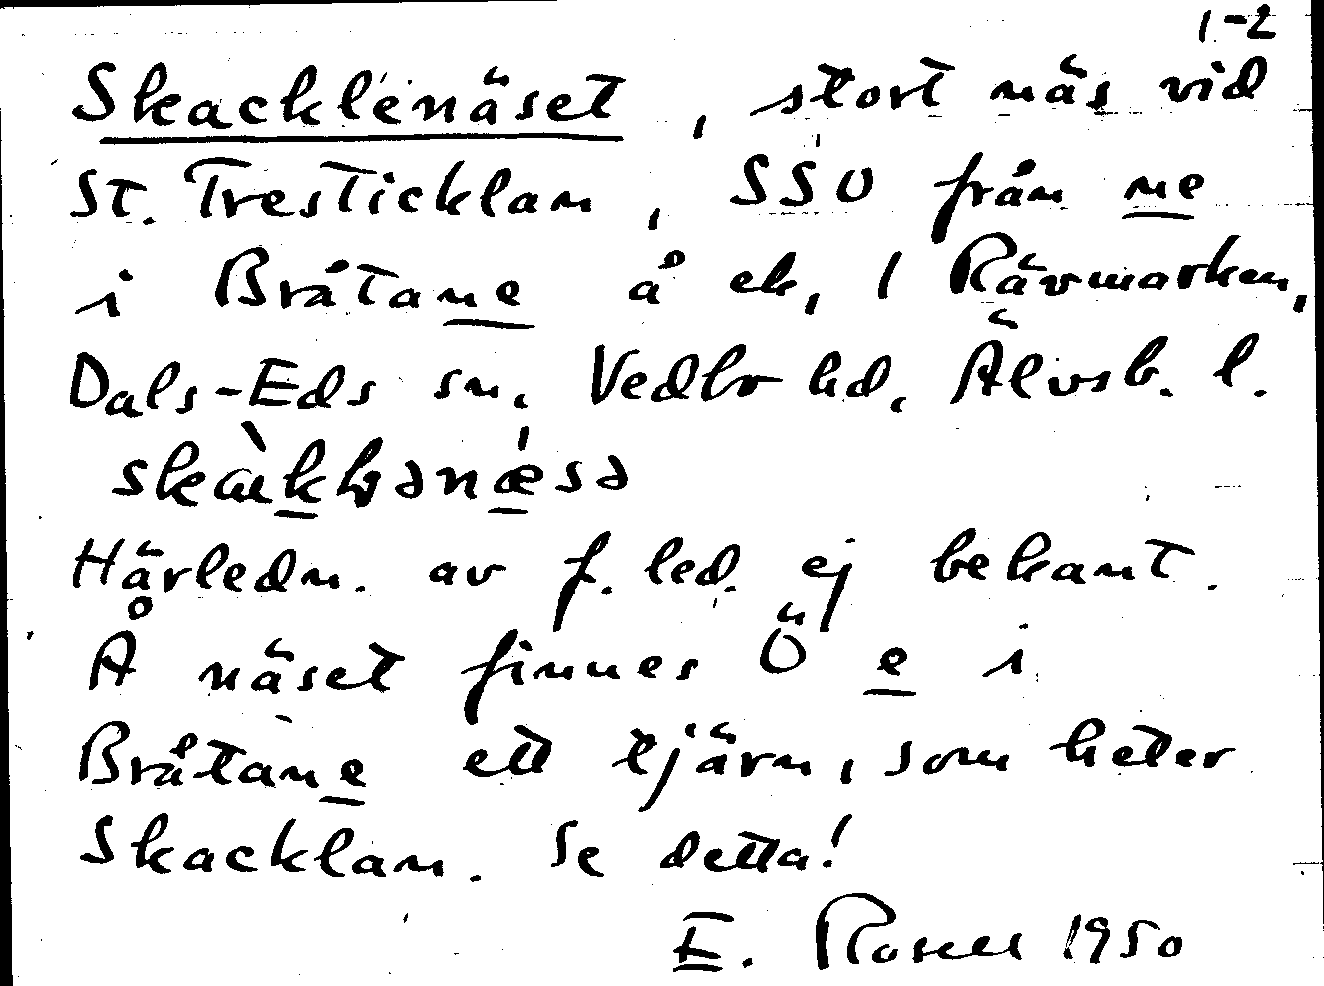 1-2
Skacklenäset, stort näs vid
St. Tresticklan, SSO från ne
i Bråtane å ek, 1 Rävmarken,
Dals-Eds sn, Vedbo hd, Älvsb. l.
Härledn. av f. led. ej bekant.
Å näset finnes Ö e i
Bråtane ett tjärn, som heter
Skacklan. Se detta!
E. Rosell 1950